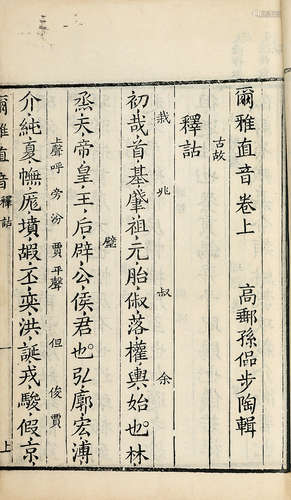 爾雅直音卷上 高郵孫偘步陶輯
古故
釋詁
栽 兆 叔 余
初哉首基肇祖元胎俶落權輿始也林
璧
烝天帝皇王后辟公侯君也弘廓宏溥
上聲呼 旁汾 賈 平聲 但 俊賈
介純夏幠厖墳嘏丕奕洪誕戎駿假京
爾雅直音 釋詁 一 上